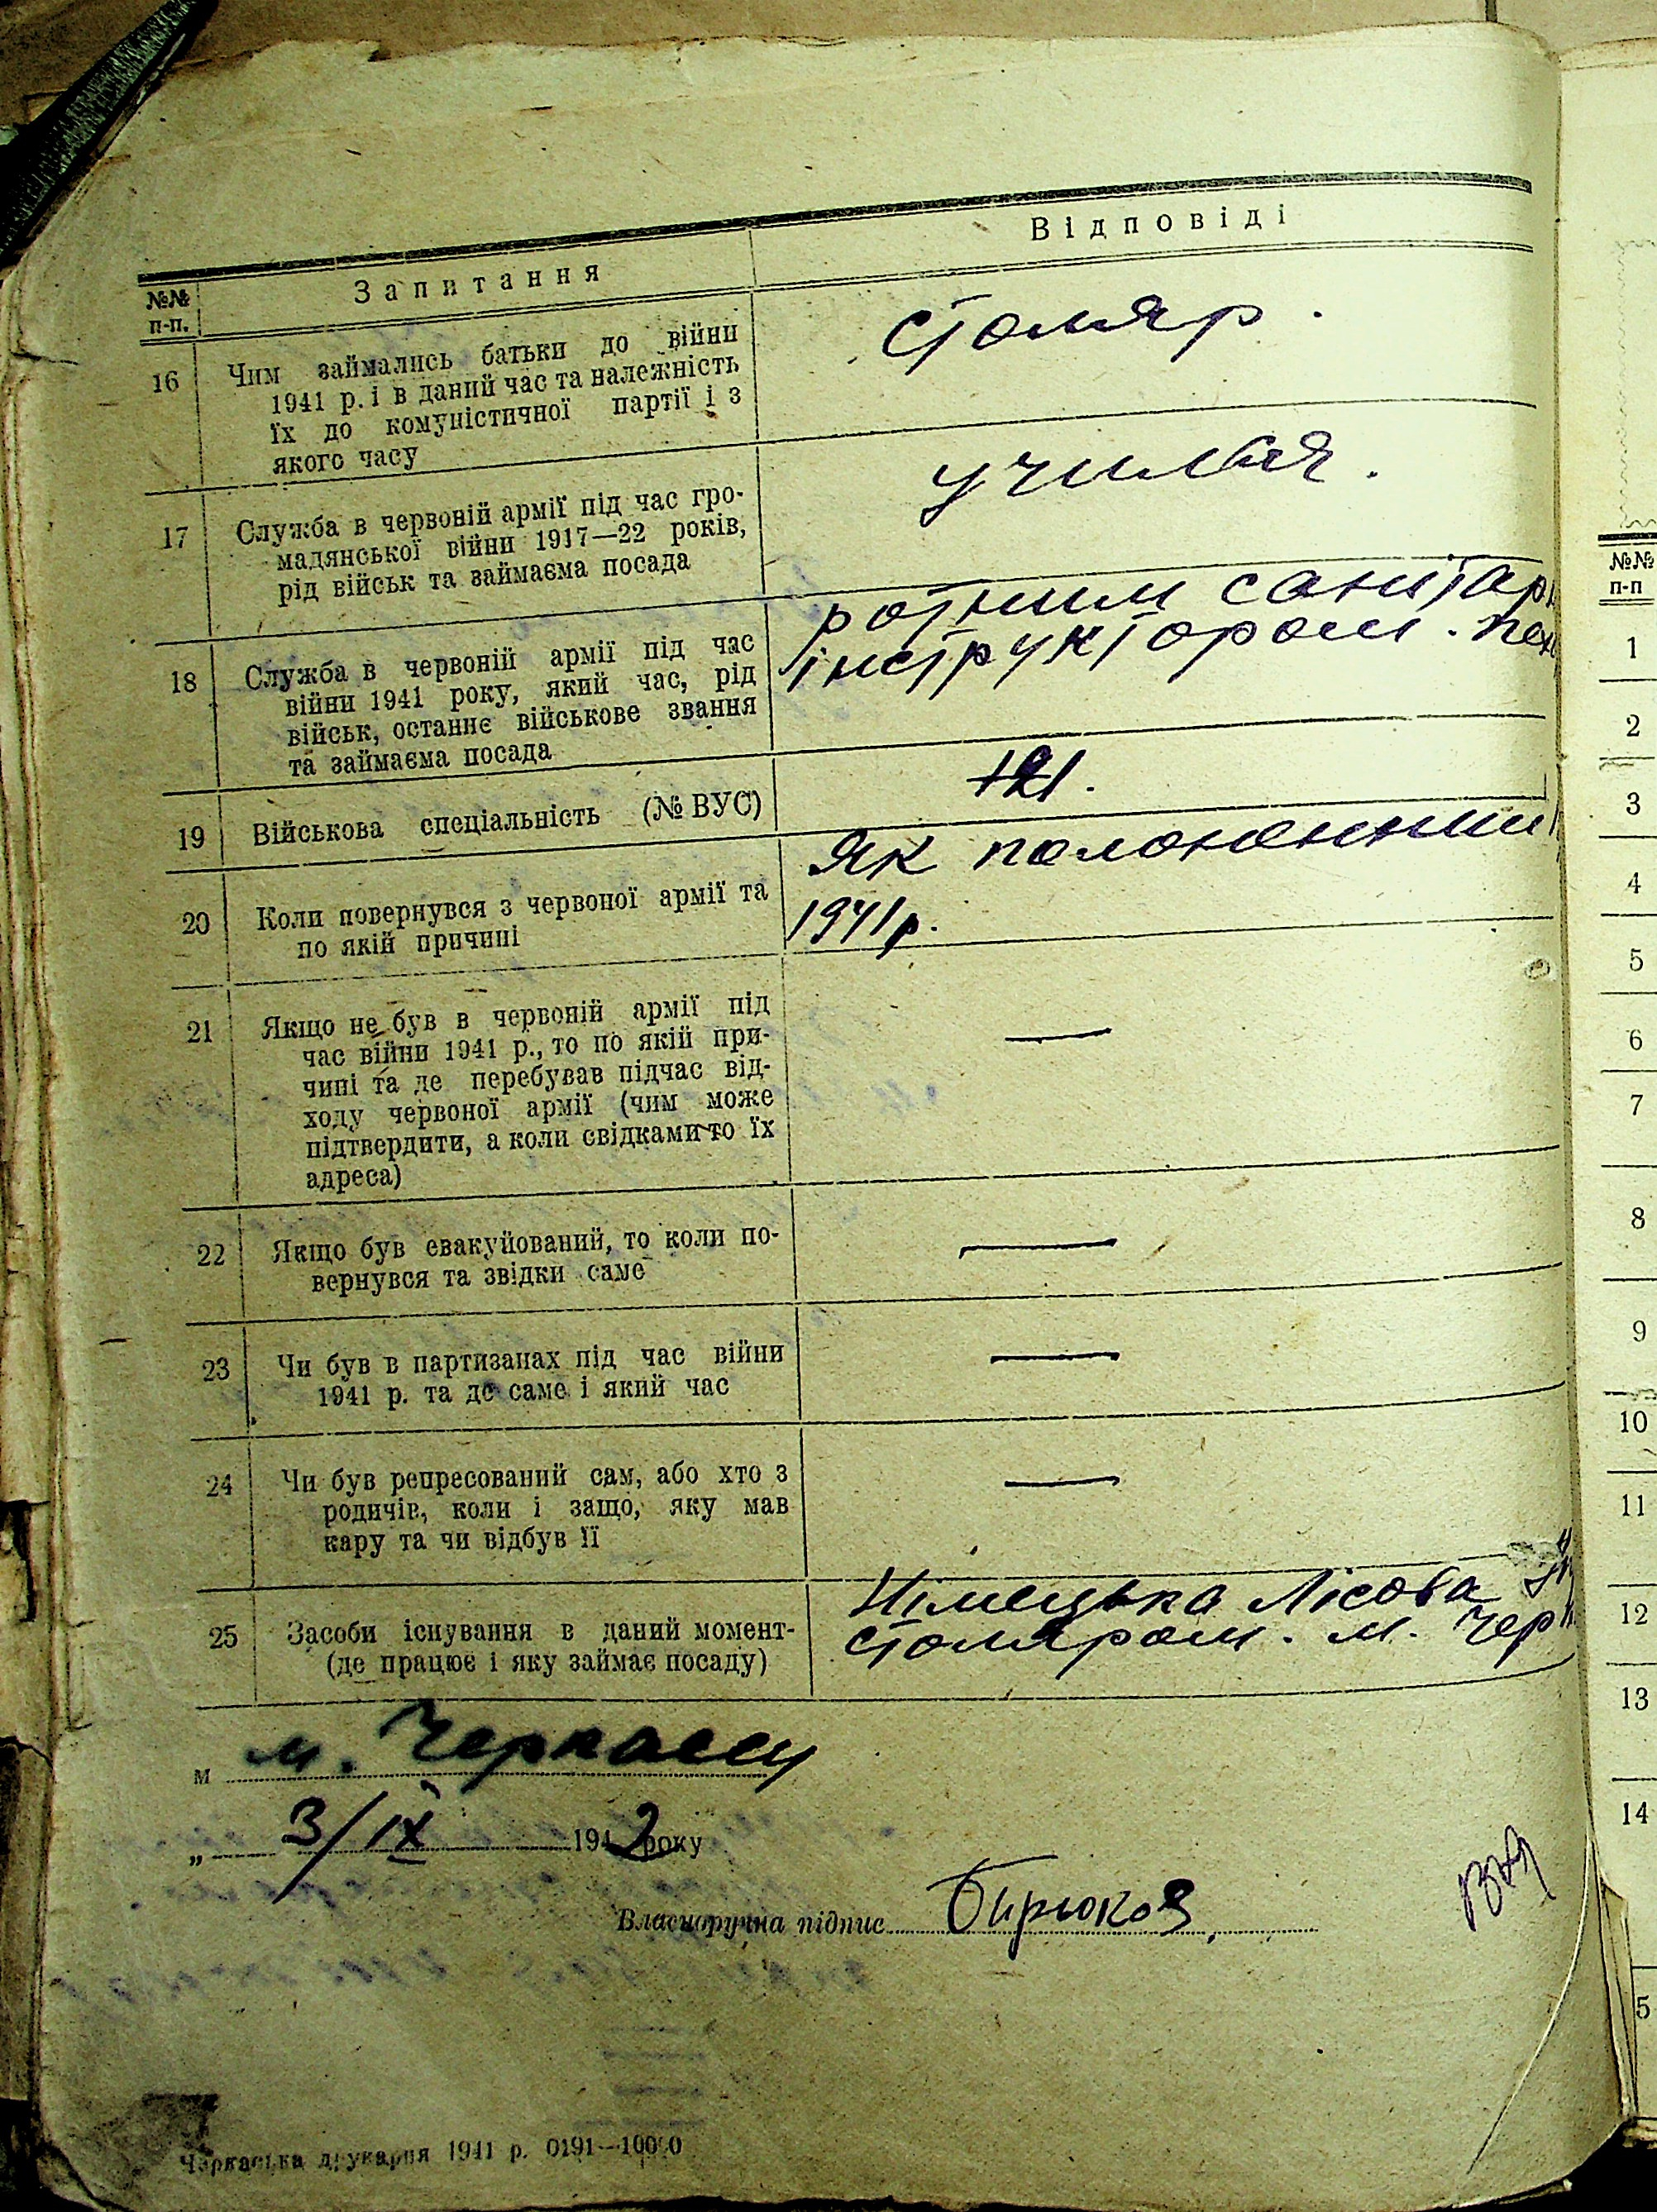 №№ п-п.
Запитання
Відповіді
16
Чим займались батьки до війни
1941 р. і в даний час та належність
їх до комуністичної партії і з
якого часу
столяр.
17
Служба в червоній армії під час гро-
мадянської війни 1917—22 років,
рід військ та займаєма посада
училвся.
18
Служба в червоній армії під час
війни 1941 року, який час, рід
військ, останнє військове звання
та займаєма посада
ротним санітар
інструктором.
19
Військова спеціальність (№ ВУС)
121.
20
Коли повернувся з червоної армії та
по якій причині
Як полоненний
1941р.
21
Якщо не був в червоній армії під
час війни 1941 р., то по якій при-
чині та де перебував підчас від-
ходу червоної армії (чим може
підтвердити, а коли свідками-то їх
адреса)
—
22
Якщо був евакуйований, то коли по-
вернувся та звідки саме
—
23
Чи був в партизанах під час війни
1941 р. та де саме і який час
—
24
Чи був репресований сам, або хто з
родичів, коли і защо, яку мав
кару та чи відбув її
—
25
Засоби існування в даний момент-
(де працює і яку займає посаду)
Німецька Лісова
столяром. м. Чер
м м. Черкассы
„ 3/IX 1942 року
Власноручна підпис Бирюков
Черкаська друкарня 1941 р. 0191—10000
№№
п-п
1
2
3
4
5
6
7
8
9
10
11
12
13
14
5